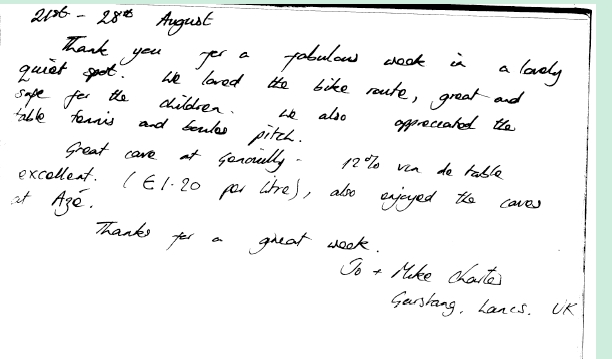 21st - 28th August
Thank you for a fabulous week in a lovely
quiet spot. We loved the bike route, great and
safe for the children. We also appreceated the
table tennis and boules pitch.
Great cave at Genouilly - 12% vin de table
excellent. (€1.20 per litre), also enjoyed the caves
at Azé.
Thanks for a great week.
Jo + Mike
Garstang, Lancs. UK